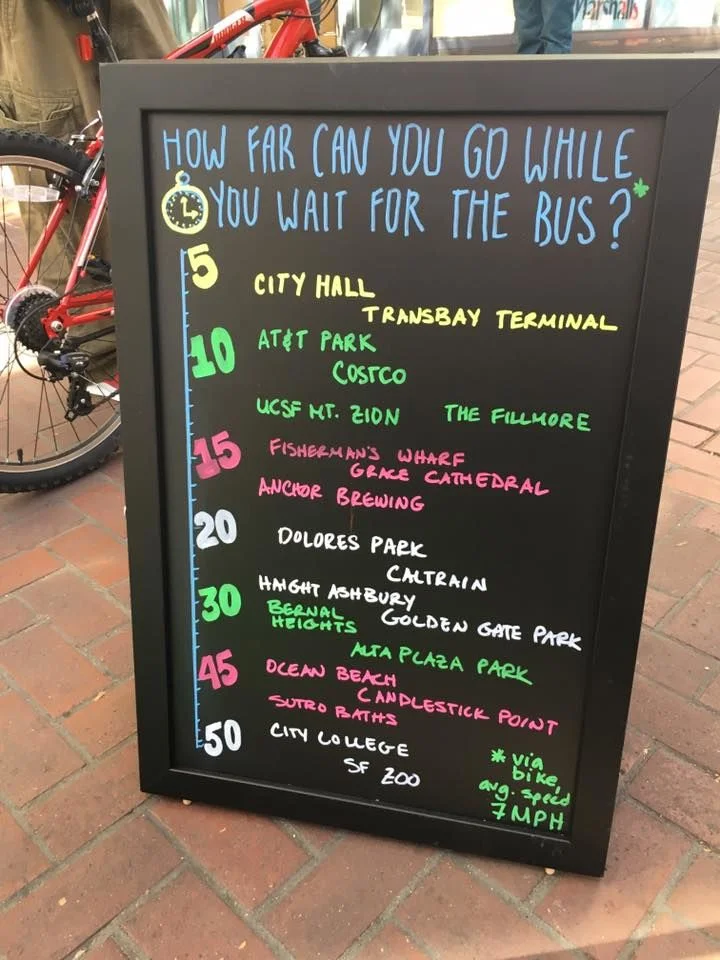 Marshalls
HOW FAR CAN YOU GO WHILE
YOU WAIT FOR THE BUS?*
5
CITY HALL
TRANSBAY TERMINAL
10
AT&T PARK
COSTCO
UCSF MT. ZION THE FILLMORE
15
FISHERMAN'S WHARF
GRACE CATHEDRAL
ANCHOR BREWING
20
DOLORES PARK
CALTRAIN
HAIGHT ASHBURY
GOLDEN GATE PARK
30
BERNAL
HEIGHTS
ALTA PLAZA PARK
45
OCEAN BEACH
CANDLESTICK POINT
SUTRO BATHS
50
CITY COLLEGE
SF ZOO
* via
bike,
avg. speed
7 MPH